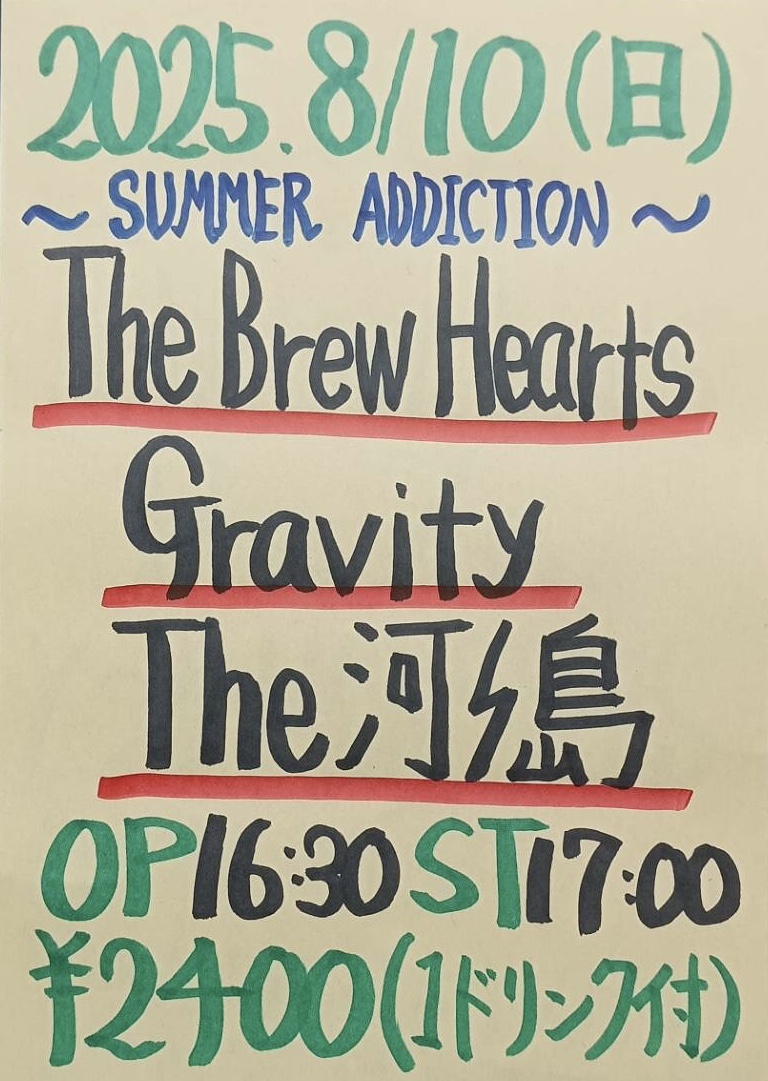 2025.8/10(日)
~ SUMMER ADDICTION ~
The Brew Hearts
Gravity
The 河ㄣ島
OP16:30 ST17:00
¥2400(1ドリンク付)